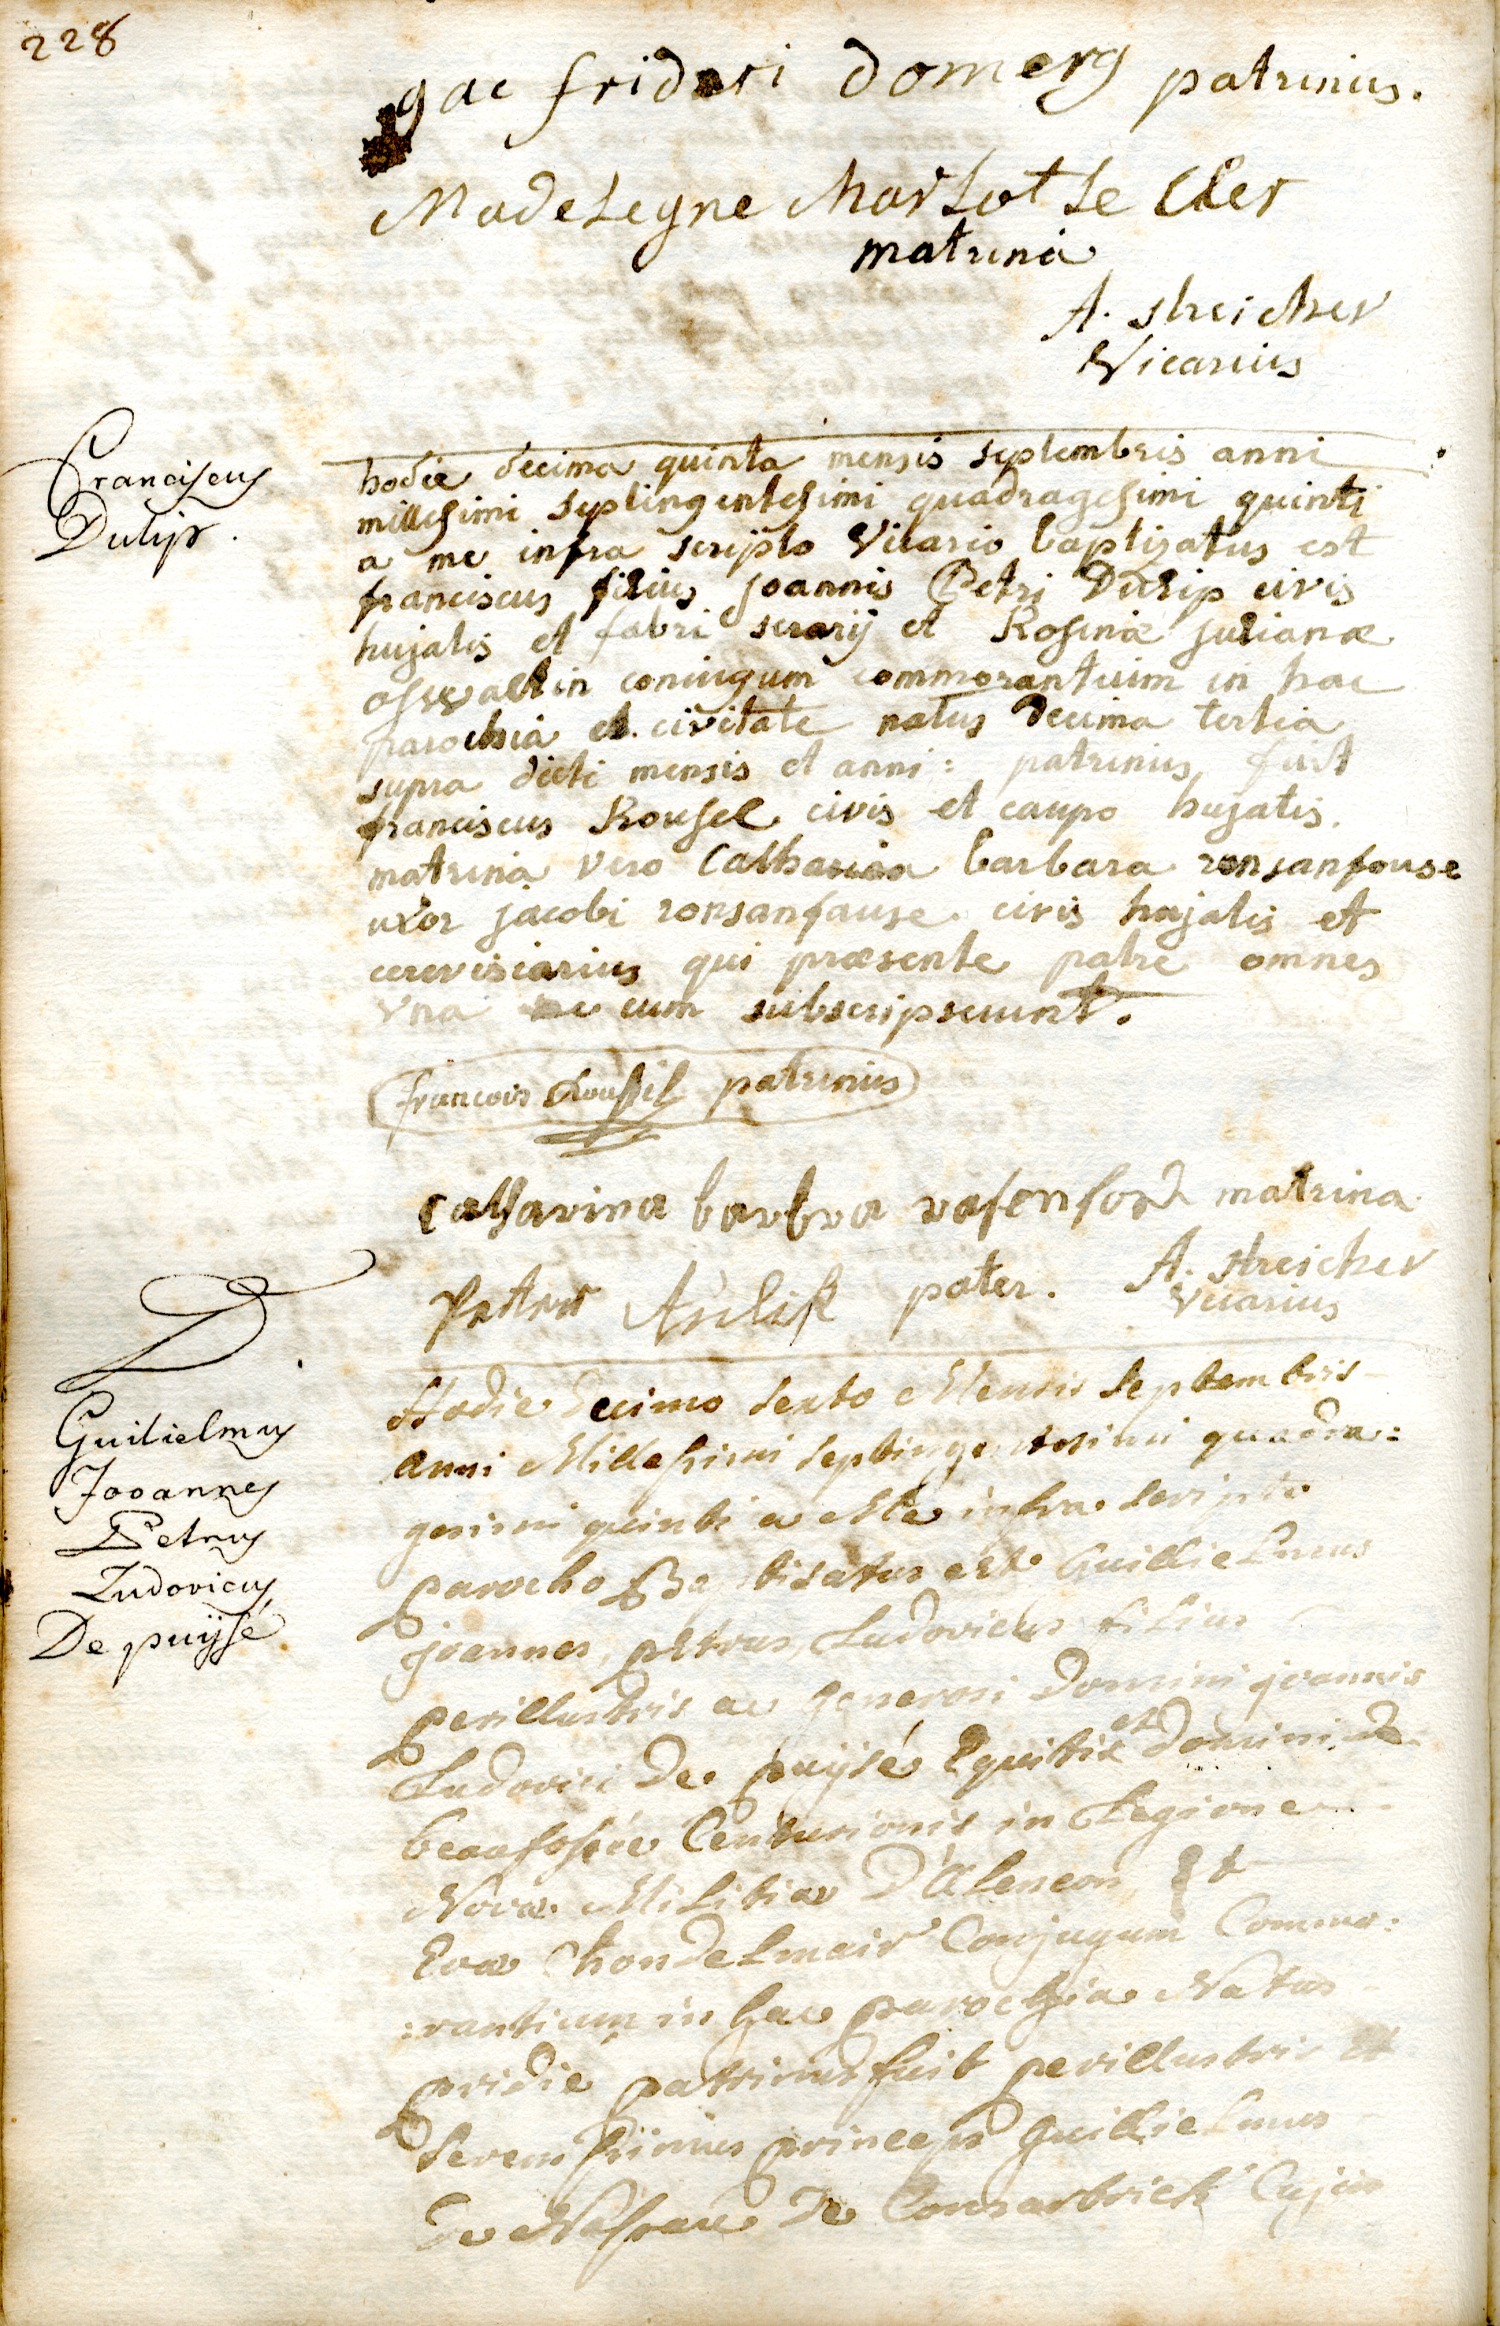 228
gac frideri domerg patrinus.
Madelegne Marlot le Cler
matrina
A. streicher
Vicarius
Franciscus
Dulip.
hodie decima quinta mensis septembris anni
millesimi septingentesimi quadragesimi quinti
a me infra scripto Vicario baptizatus est
franciscus filius joannis Petri Dulip civis
hujatis et fabri serarij et Rosinæ julianæ
oswaltin coniugum commorantuim in hac
parochia et civitate natus decima tertia
supra dicti mensis et anni: patrinus fuit
franciscus Rousel civis et caupo hujatis.
matrina vero Catharina barbara ronsanfouse
uxor jacobi ronsanfause civis hujatis et
cerevisiarius qui præsente patre omnes
vna me cum subscripserunt.
francois Roussil patrinus
Catharina barbra rosenfort matrina
Petter pater. A. streicher
Vicarius
D.
Guilielmus
Jooannes
Petrus
Ludovicus
De puijsé
Hodie Decimo Sexto Mensis Septembris
anni Millesimi Septingentesimi quadra:
gesimi quinti a Me infra scripto
parocho Baptisatus est Guillielmus
joannes, petrus, Ludovicus filius
perillustris ac generosi Domini joannis
Ludovici De puijsé Equitis et Domini de
beaufossée Centurionis in Legione
Novæ Militiæ D'Alencon Et
Evæ Chondelmair Conjugum Commo:
:rantium in hac parochia Natus
pridie patrinus fuit perillustris et
Serenissimus princeps Guillielmus
de Nassau De Consarbrick Cujus